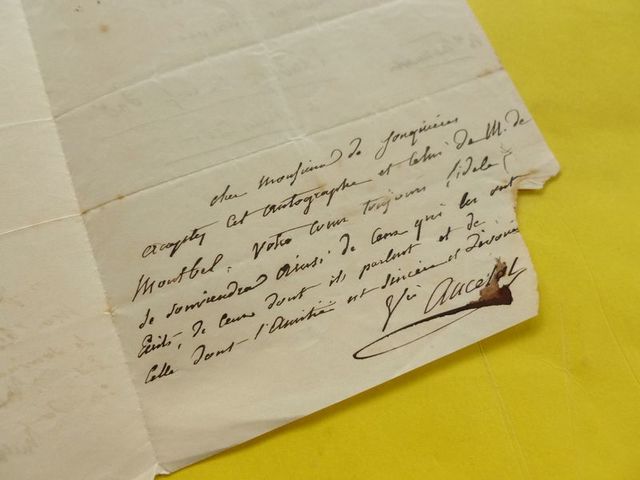 cher Monsieur de Jonquières
acceptez cet autographe et celui de M. de
Montbel. Votre cœur toujours fidele
se souviendra ainsi de ceux qui les ont
écrits, de ceux dont ils parlent et de
celle dont l'amitié est sincère et dévouée
Vie Ancelot